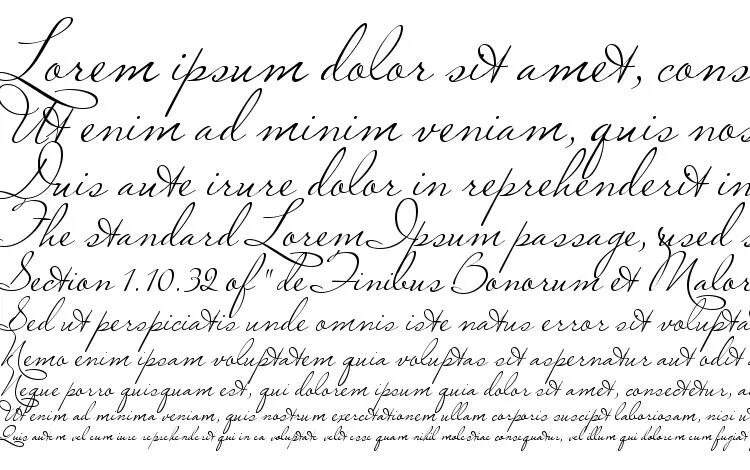 Lorem ipsum dolor sit amet, cons
Ut enim ad minim veniam, quis nos
Duis aute irure dolor in reprehenderit in
The standard Lorem Ipsum passage, used s
Section 1.10.32 of "de Finibus Bonorum et Malor
Sed ut perspiciatis unde omnis iste natus error sit volupta
Nemo enim ipsam voluptatem quia voluptas sit aspernatur aut odit a
Neque porro quisquam est, qui dolorem ipsum quia dolor sit amet, consectetur, a
Ut enim ad minima veniam, quis nostrum exercitationem ullam corporis suscipit laboriosam, nisi u
Quis autem vel eum iure reprehenderit qui in ea voluptate velit esse quam nihil molestiae consequatur, vel illum qui dolorem eum fugiat